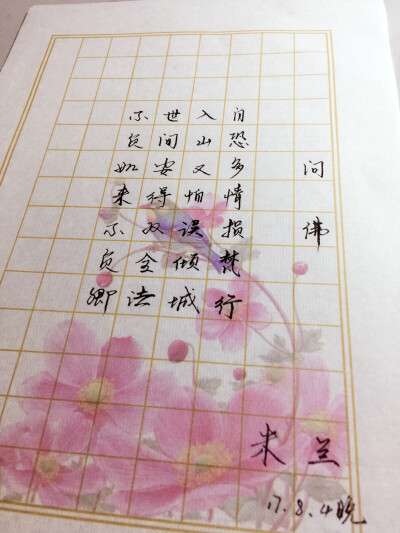 问佛
自恐多情损梵行
入山又怕误倾城
世间安得双全法
不负如来不负卿
米兰
17.8.4晚